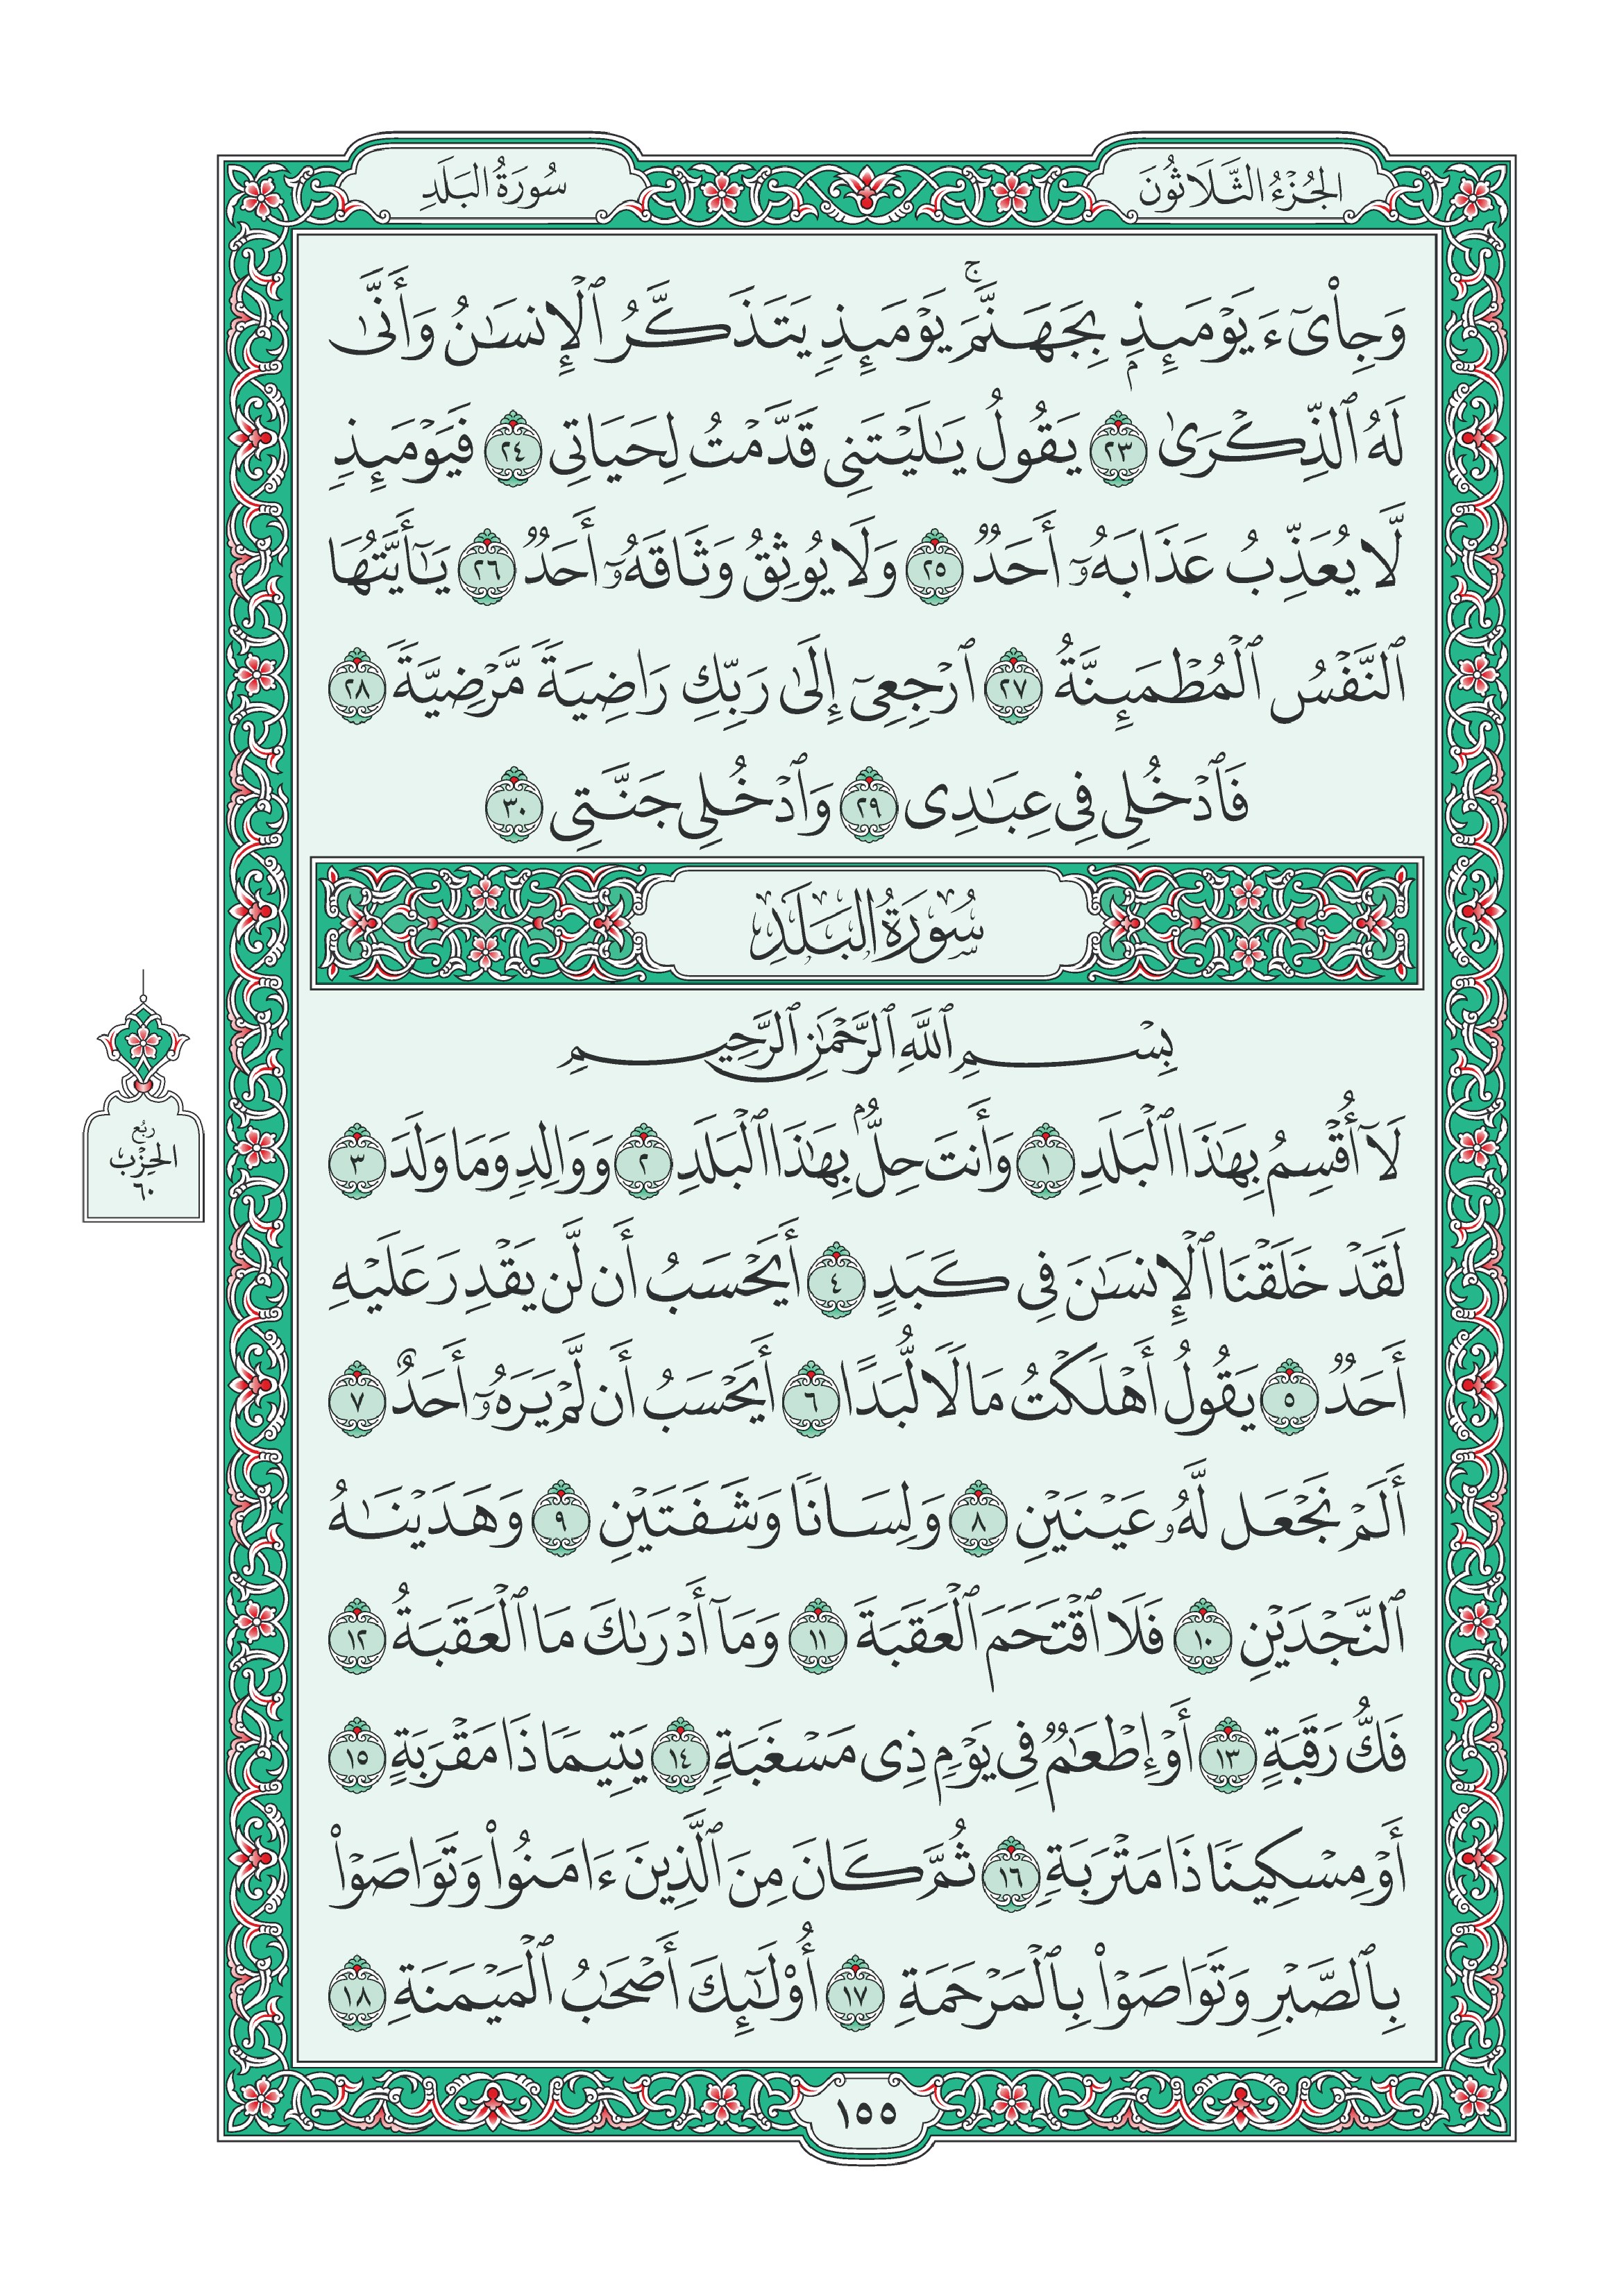 الجُزْءُ الثَّلَاثُونَ
سُورَةُ البَلَدِ
وَجِا۟ىٓءَ يَوْمَئِذِۭ بِجَهَنَّمَۚ يَوْمَئِذٖ يَتَذَكَّرُ ٱلۡإِنسَٰنُ وَأَنَّىٰ
لَهُ ٱلذِّكۡرَىٰ ٢٣ يَقُولُ يَٰلَيۡتَنِي قَدَّمۡتُ لِحَيَاتِي ٢٤ فَيَوۡمَئِذٖ
لَّا يُعَذِّبُ عَذَابَهُۥٓ أَحَدٞ ٢٥ وَلَا يُوثِقُ وَثَاقَهُۥٓ أَحَدٞ ٢٦ يَٰٓأَيَّتُهَا
ٱلنَّفۡسُ ٱلۡمُطۡمَئِنَّةُ ٢٧ ٱرۡجِعِيٓ إِلَىٰ رَبِّكِ رَاضِيَةٗ مَّرۡضِيَّةٗ ٢٨
فَٱدۡخُلِي فِي عِبَٰدِي ٢٩ وَٱدۡخُلِي جَنَّتِي ٣٠
سُورَةُ البَلَدِ
بِسۡمِ ٱللَّهِ ٱلرَّحۡمَٰنِ ٱلرَّحِيمِ
لَآ أُقۡسِمُ بِهَٰذَا ٱلۡبَلَدِ ١ وَأَنتَ حِلُّۢ بِهَٰذَا ٱلۡبَلَدِ ٢ وَوَالِدٖ وَمَا وَلَدَ ٣
لَقَدۡ خَلَقۡنَا ٱلۡإِنسَٰنَ فِي كَبَدٍ ٤ أَيَحۡسَبُ أَن لَّن يَقۡدِرَ عَلَيۡهِ
أَحَدٞ ٥ يَقُولُ أَهۡلَكۡتُ مَالٗا لُّبَدًا ٦ أَيَحۡسَبُ أَن لَّمۡ يَرَهُۥٓ أَحَدٌ ٧
أَلَمۡ نَجۡعَل لَّهُۥ عَيۡنَيۡنِ ٨ وَلِسَانٗا وَشَفَتَيۡنِ ٩ وَهَدَيۡنَٰهُ
ٱلنَّجۡدَيۡنِ ١٠ فَلَا ٱقۡتَحَمَ ٱلۡعَقَبَةَ ١١ وَمَآ أَدۡرَىٰكَ مَا ٱلۡعَقَبَةُ ١٢
فَكُّ رَقَبَةٍ ١٣ أَوۡ إِطۡعَٰمٞ فِي يَوۡمٖ ذِي مَسۡغَبَةٖ ١٤ يَتِيمٗا ذَا مَقۡرَبَةٍ ١٥
أَوۡ مِسۡكِينٗا ذَا مَتۡرَبَةٖ ١٦ ثُمَّ كَانَ مِنَ ٱلَّذِينَ ءَامَنُواْ وَتَوَاصَوۡاْ
بِٱلصَّبۡرِ وَتَوَاصَوۡاْ بِٱلۡمَرۡحَمَةِ ١٧ أُوْلَٰٓئِكَ أَصۡحَٰبُ ٱلۡمَيۡمَنَةِ ١٨
ربُع
الحِزْب
٦٠
١٥٥